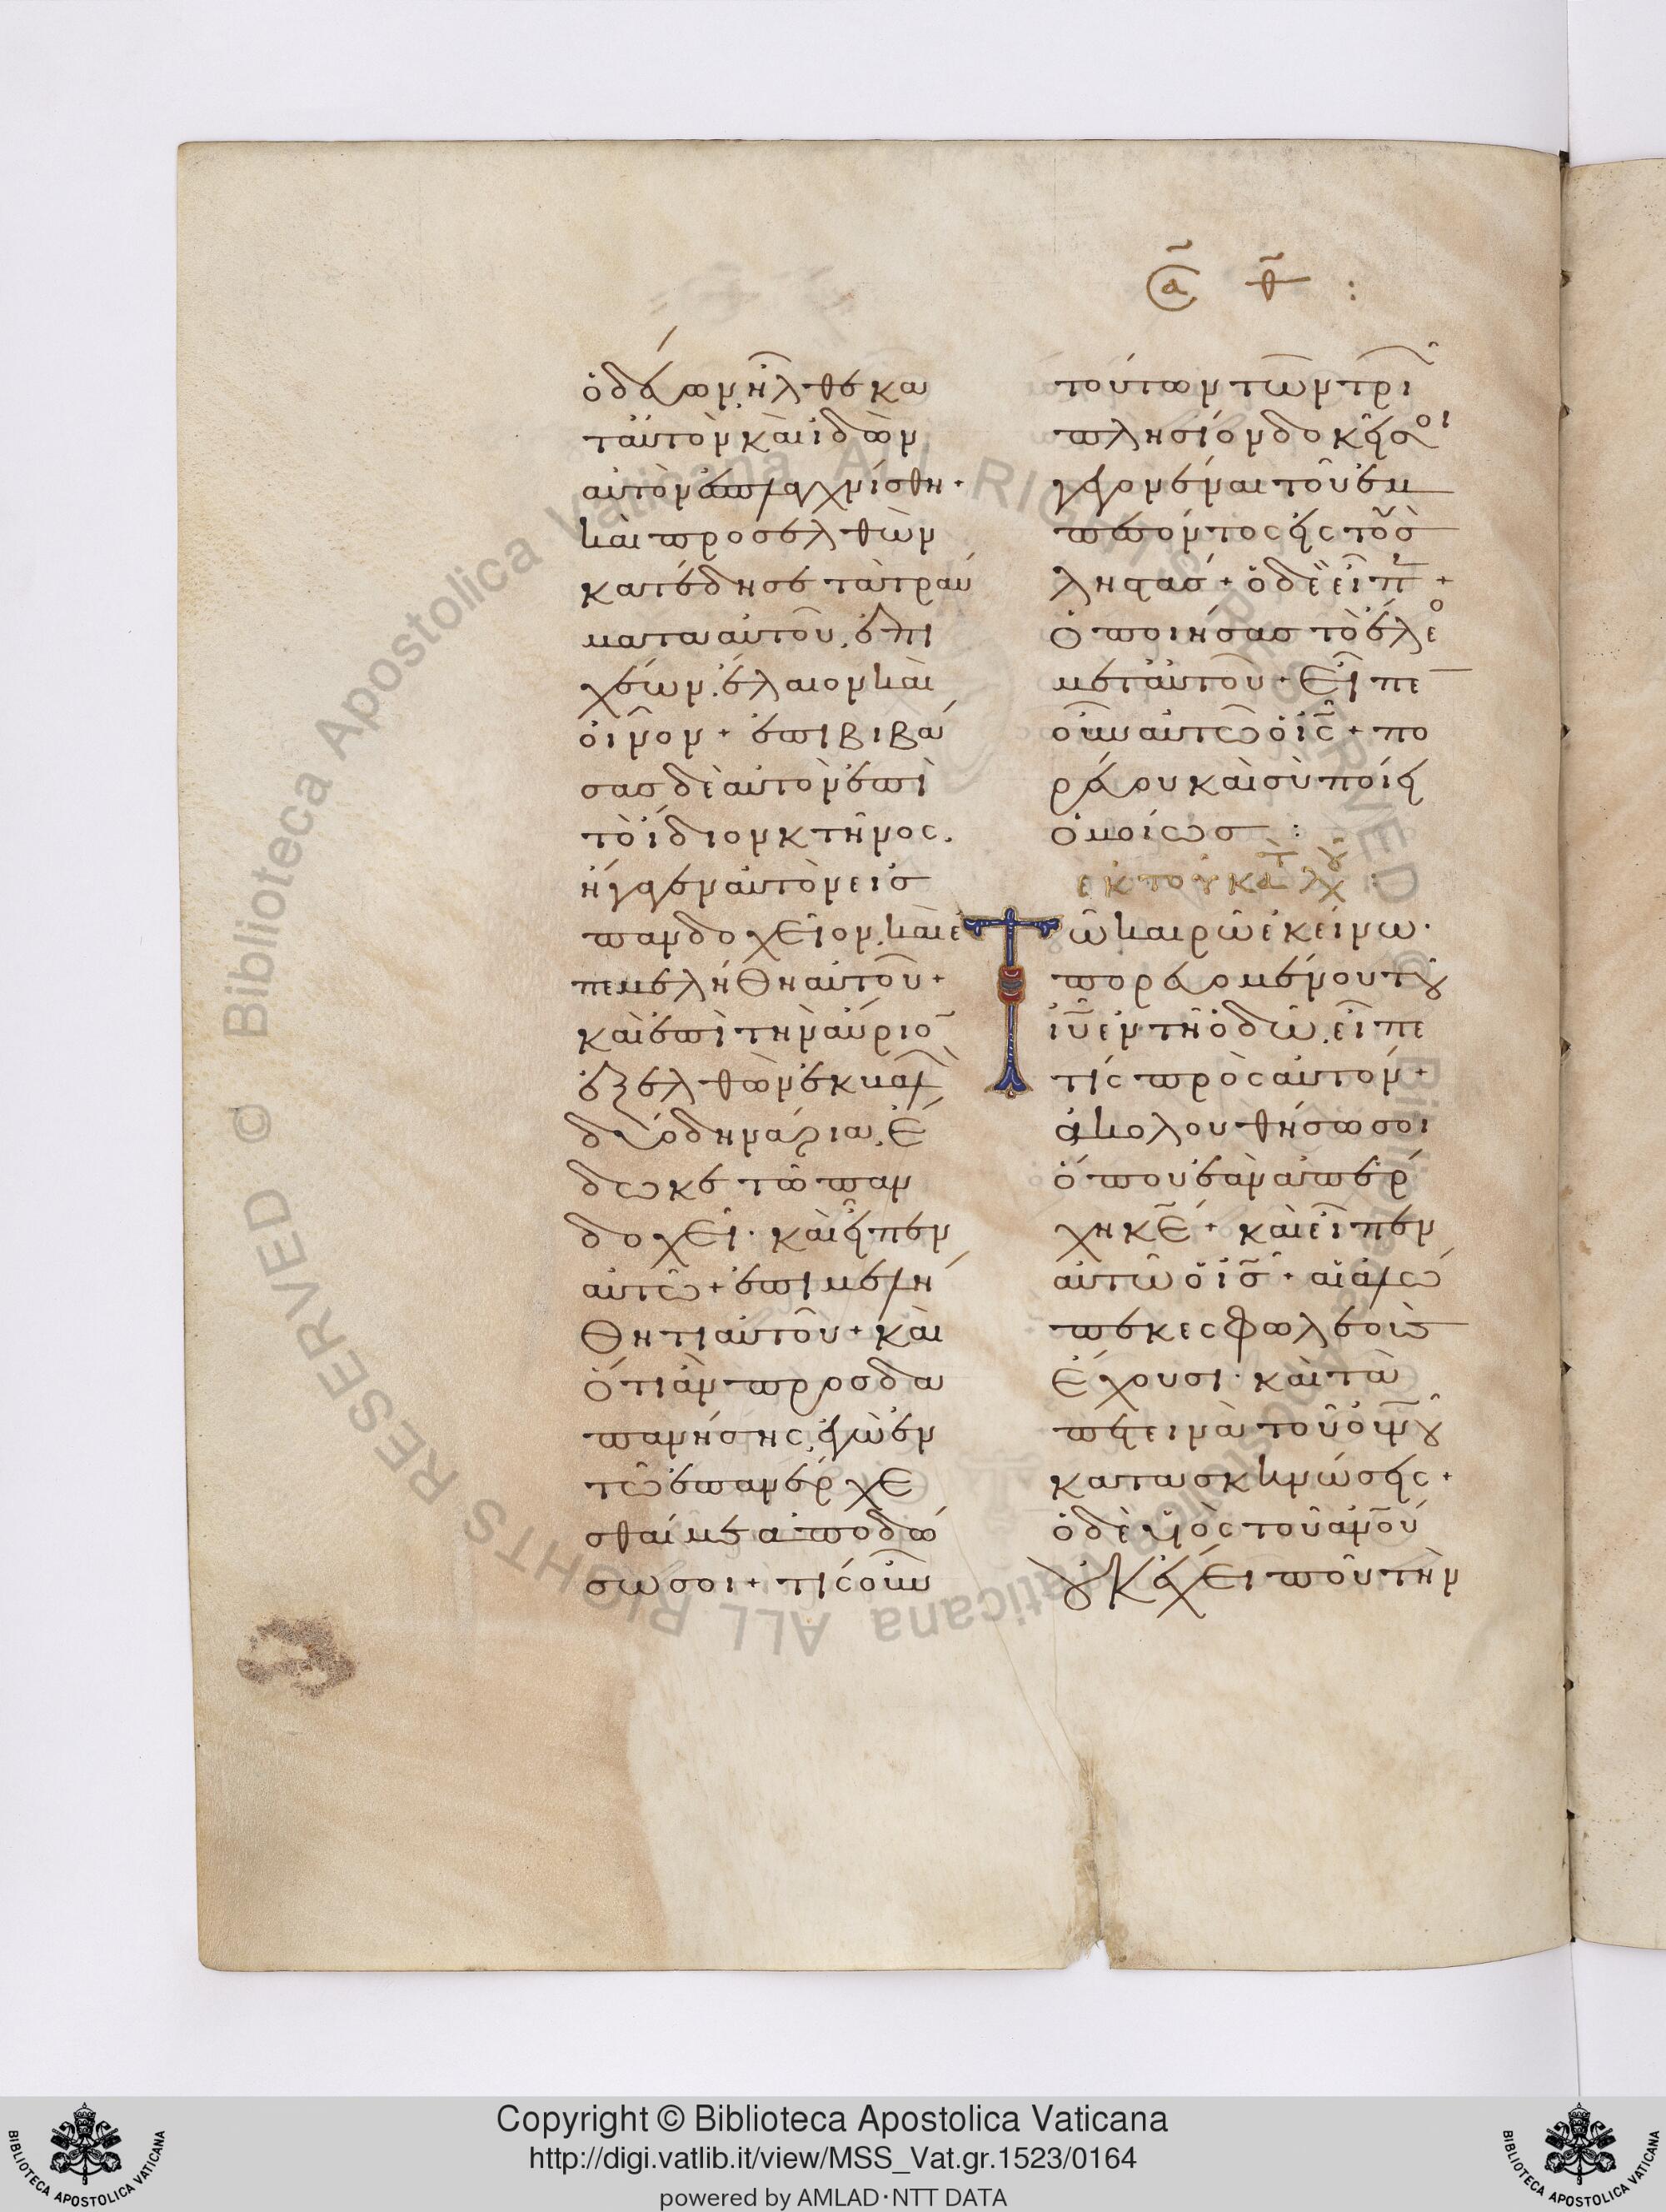 α θ :
ὁδεύων, ἦλθε κα
τ' αὐτὸν καὶ ἰδὼν
αὐτὸν ἐσπλαγχνίσθη·
καὶ προσελθὼν
κατέδησε τὰ τραύ
ματα αὐτοῦ, ἐπι
χέων, ἔλαιον καὶ
οἶνον + ἐπιβιβά
σας δὲ αὐτὸν ἐπὶ
τὸ ἴδιον κτῆνος,
ἤγαγεν αὐτὸν εἰς
πανδοχεῖον, καὶ ἐ
πεμελήθη αὐτοῦ +
καὶ ἐπὶ τὴν αὔριο̅
ἐξελθὼν ἐκβαλὼν
δύο δηνάρια, ἔ
δωκε τῷ παν
δοχεῖ· καὶ εἶπεν
αὐτῷ + ἐπιμελή
θητι αὐτοῦ + καὶ
ὅτι ἂν προσδα
πανήσης, ἐγὼ ἐν
τῷ ἐπανέρχε
σθαί με ἀποδώ
σω σοι + τίς οὖν
τούτων τῶν τρι
πλησίον δοκεῖ σοι
γεγονέναι τοῦ ἐμ
πεσόντος εἰς τοὺς
ληστάς + ὁ δὲ εἶπ +
ὁ ποιήσας τὸ ἔλεο
μετ' αὐτοῦ + Εἶπε
οὖν αὐτῷ ὁ ις + πο
ρεύου καὶ σὺ ποίει
ὁμοίως :
ἐκ τοῦ κατ λου :
Τῶ καιρῶ ἐκείνω·
πορευομένου τοῦ
ιυ ἐν τῇ ὁδῷ, εἶπέ
τις πρὸς αὐτόν +
ἀκολουθήσω σοι
ὅπου ἐὰν ἀπέρ
χη κε + καὶ εἶπεν
αὐτῶ ὁ ις + αἱ ἀλώ
πεκες φωλεοὺς
ἔχουσι· καὶ τὰ
πετεινὰ τοῦ ουνου
κατασκηνώσεις +
ὁ δὲ υἱὸς τοῦ ανου
οὐκ ἔχει ποῦ τὴν
Copyright © Biblioteca Apostolica Vaticana
http://digi.vatlib.it/view/MSS_Vat.gr.1523/0164
powered by AMLAD·NTT DATA
BIBLIOTECA APOSTOLICA VATICANA
BIBLIOTECA APOSTOLICA VATICANA
Biblioteca Apostolica Vaticana ALL RIGHTS RESERVED ©
Biblioteca Apostolica Vaticana ALL RIGHTS RESERVED ©